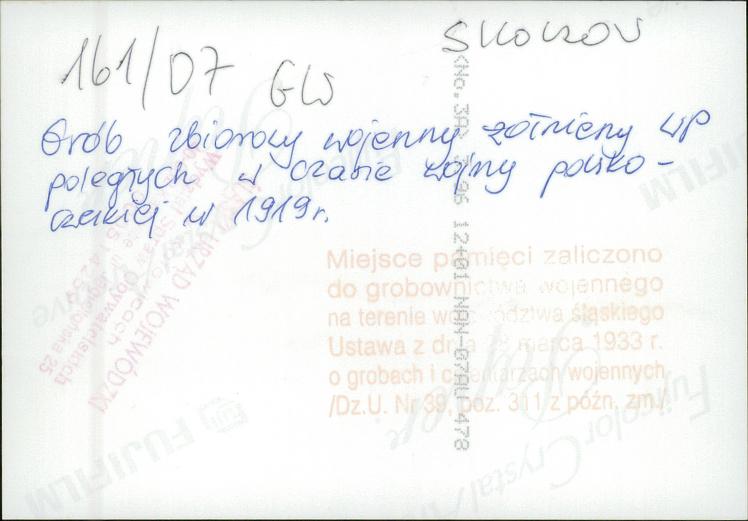 161/07 GW
SKOCZÓW
Grób zbiorowy wojenny żołnierzy WP
poległych w czasie wojny polsko-
czeskiej w 1919 r.
Miejsce pamięci zaliczono
do grobownictwa wojennego
na terenie województwa śląskiego
Ustawa z dnia 28 marca 1933 r.
o grobach i cmentarzach wojennych
/Dz.U. Nr 39, poz. 311 z późn. zm./
URZĄD WOJEWÓDZKI
12+01 NNN-07AU 478
FUJIFILM
FUJIFILM
Fujicolor Crystal